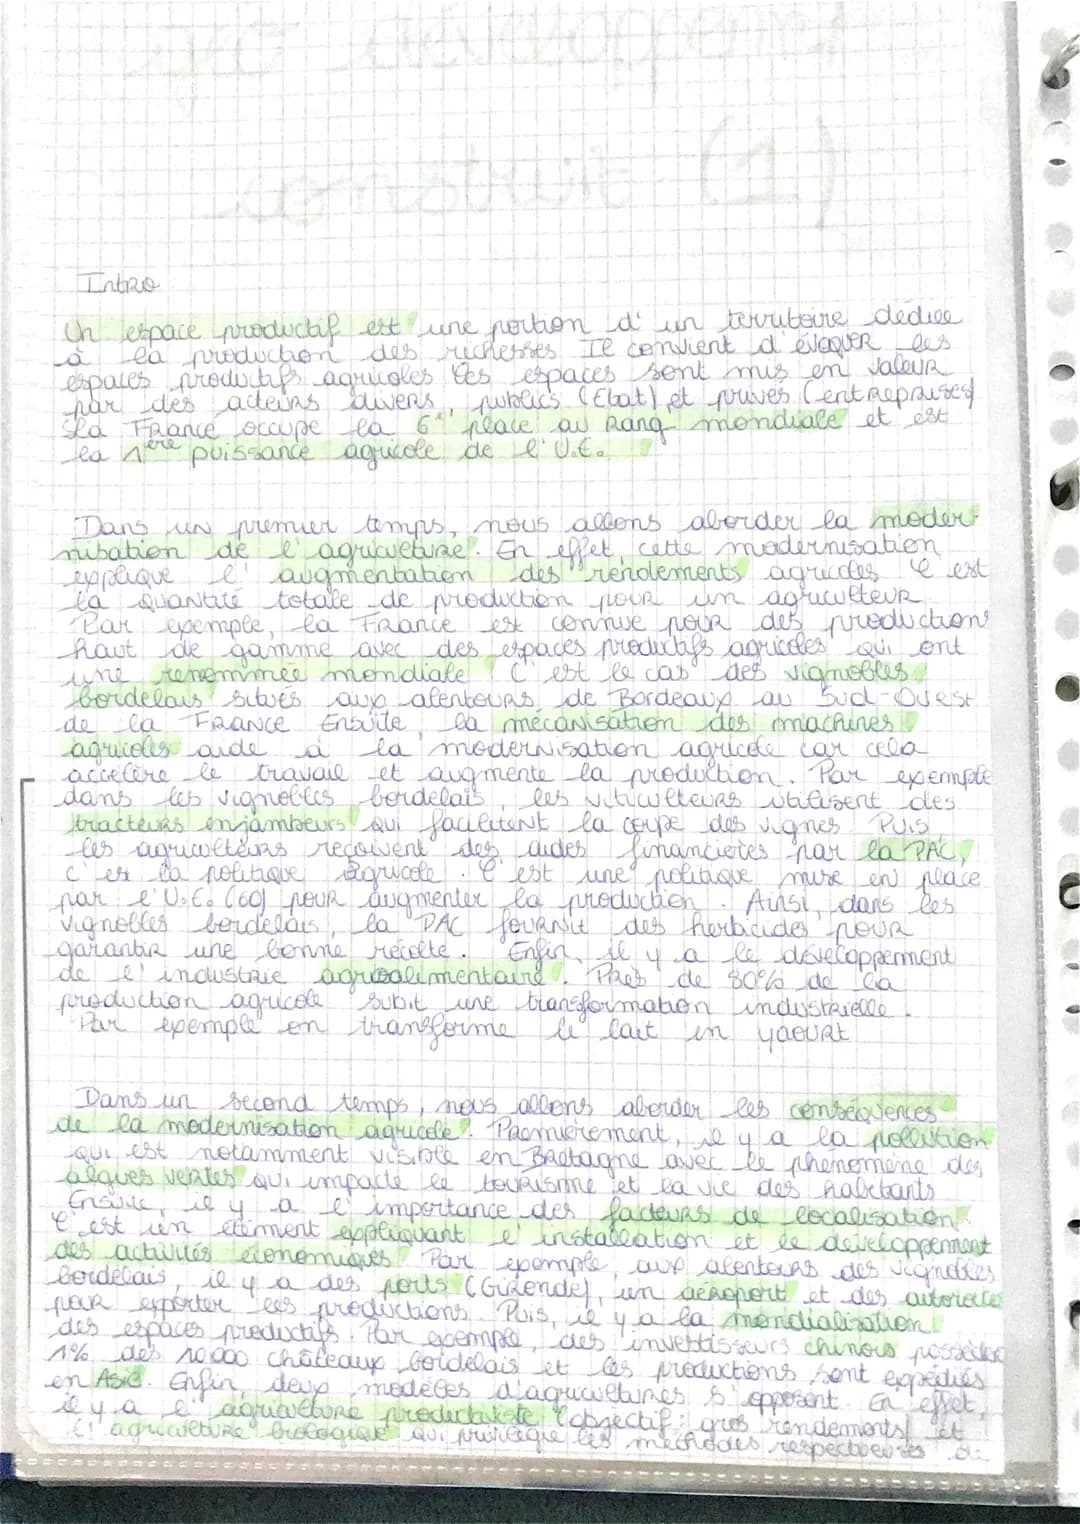 développement
construit (1)
Intro
Un espace productif est une portion d'un territoire dédiée
à la production des richesses Il convient d'évoquer les
espaces productifs agricoles Ces espaces sont mis en valeur
par des acteurs divers, publics (Etat) et privés (entreprises)
La France occupe la 6e place au rang mondiale et est
la 1ère puissance agricole de l'U.E.
Dans un premier temps, nous allons aborder la moder-
nisation de l'agriculture. En effet, cette modernisation
explique l'augmentation des rendements agricoles C'est
la quantité totale de production pour un agriculteur
Par exemple, la France est connue pour des productions
haut de gamme avec des espaces productifs agricoles qui ont
une renommée mondiale C'est le cas des vignobles
bordelais situés aux alentours de Bordeaux au Sud-Ouest
de la France Ensuite, la mécanisation des machines
agricoles aide à la modernisation agricole car cela
accélère le travail et augmente la production. Par exemple
dans les vignobles bordelais, les viticulteurs utilisent des
tracteurs enjambeurs qui facilitent la coupe des vignes Puis,
les agriculteurs reçoivent des aides financières par la PAC,
c'es la politique agricole. C'est une politique mise en place
par l'U.E. (60) pour augmenter la production. Ainsi, dans les
vignobles bordelais, la PAC fournit des herbicides pour
garantir une bonne récolte. Enfin, il y a le développement
de l'industrie agroalimentaire. Près de 80% de la
production agricole subit une transformation industrielle.
Par exemple on transforme le lait en yaourt
Dans un second temps, nous allons aborder les conséquences
de la modernisation agricole. Premièrement, il y a la pollution
qui est notamment visible en Bretagne avec le phénomène des
algues vertes qui impacte le tourisme et la vie des habitants
Ensuite, il y a l'importance des facteurs de localisation.
C'est un élément expliquant l'installation et le développement
des activités économiques Par exemple, aux alentours des vignobles
bordelais, il y a des ports (Gironde), un aéroport et des autoroutes
pour exporter les productions. Puis, il y a la mondialisation
des espaces productifs. Par exemple, des investisseurs chinois possèdent
1% des 10 000 châteaux bordelais et les productions sont expédiés
en Asie. Enfin, deux modèles d'agricultures s'opposent. En effet,
il y a l'agriculture productiviste (objectif: gros rendements) et
l'agriculture biologique qui privilégie les méthodes respectueuses de